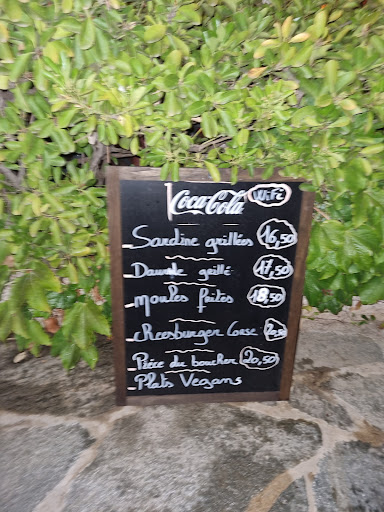 Coca-Cola Wifi
- Sardine grillées 16,50
- Daurade grillé 17,50
- Moules frites 18,50
- Cheesburger Corse
- Pièce du boucher 20,50
- Plats Vegans